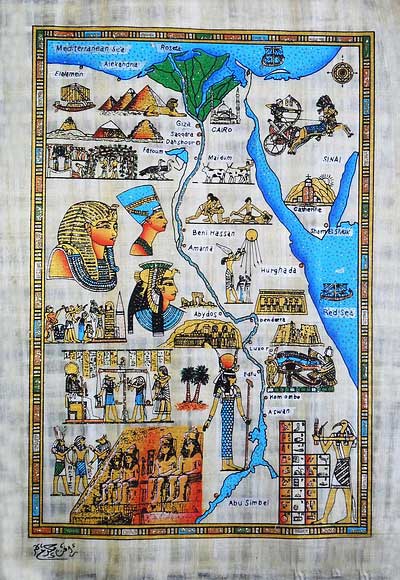 Mediterranean Sea
Rosetta
Alexandria
Elalamein
Giza
CAIRO
Saqqara
Dahshour
Faioum
Maidum
SINAI
Catherine
Beni Hassan
Amarna
Hurghada
Red Sea
Abydos
Dendara
Luxor
Edfu
Kom ombo
Aswan
Abu Simbel